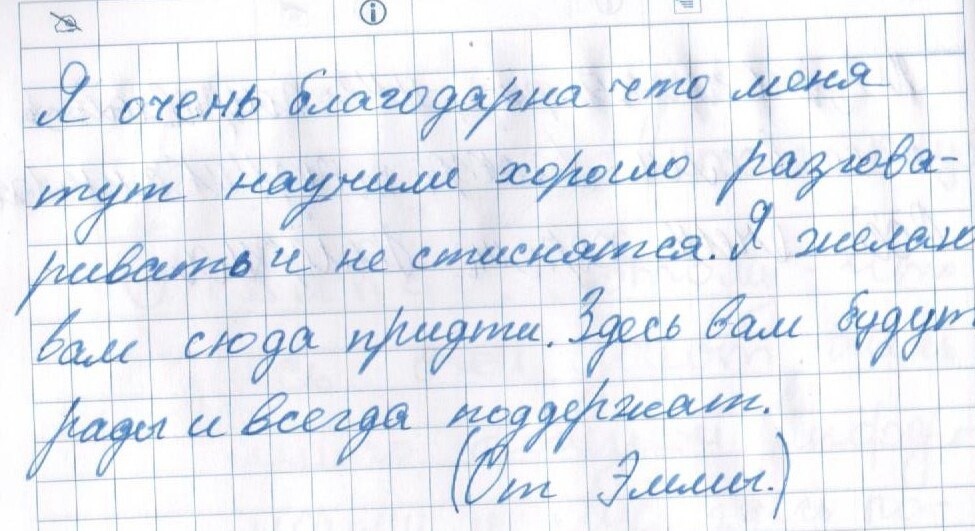 Я очень благодарна что меня
тут научили хорошо разгова-
ривать и не стиснятся. Я желаю
вам сюда придти. Здесь вам будут
рады и всегда поддержат.
(От Эммы.)